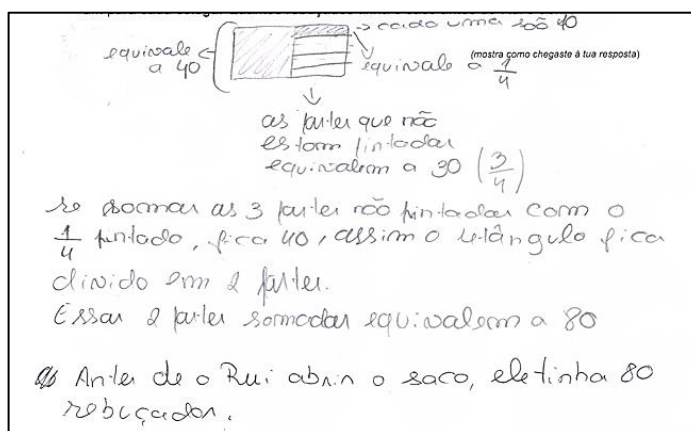 → cada uma são 10
equivale a 40
(mostra como chegaste à tua resposta)
equivale a 1/4
as partes que não
estam pintadas
equivalem a 30 (3/4)
se somar as 3 partes não pintadas com o
1/4 pintado, fica 40, assim o retângulo fica
divido em 2 partes.
Essas 2 partes somadas equivalem a 80
Antes de o Rui abrir o saco, ele tinha 80
rebuçados.